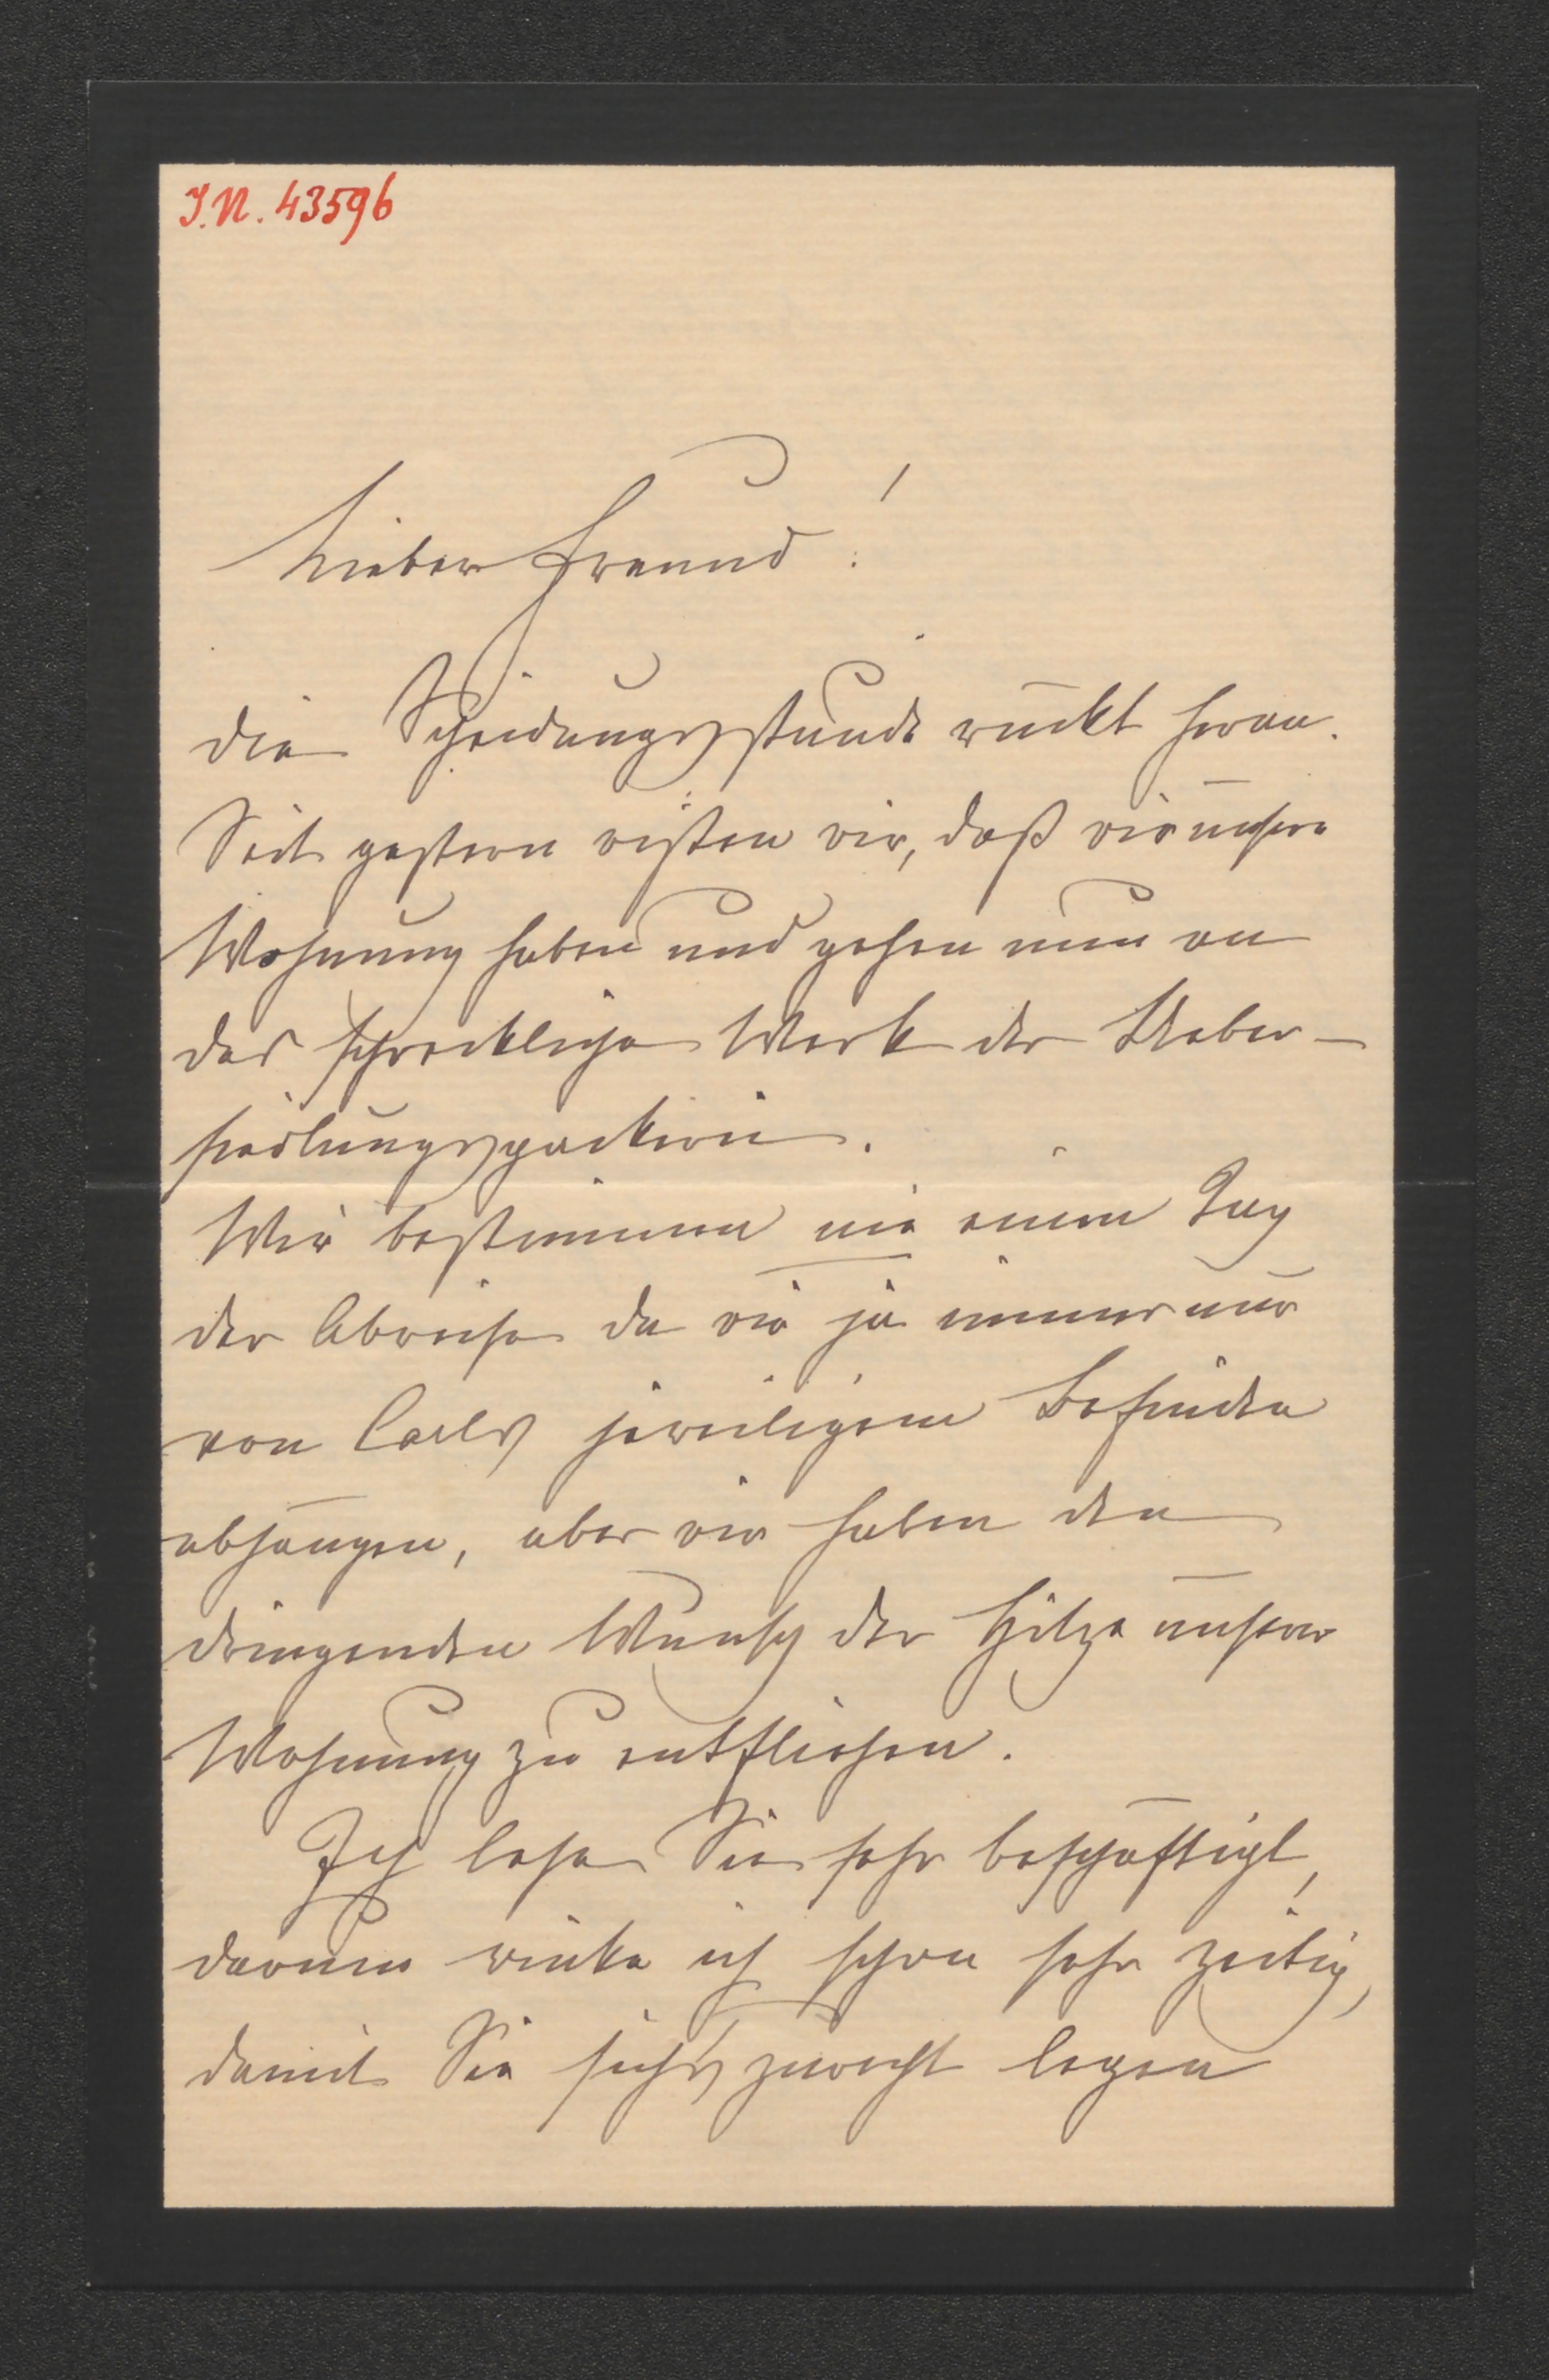 J.N. 43596
Lieber Freund!
die Scheidungsstunde rückt heran.
Seit gestern wißen wir, daß wir unsere
Wohnung haben und gehen nun an
das schreckliche Werk der Ueber-
siedlungspackerei.
Wir bestimmen nie einen Tag
der Abreise da wir ja immer nur
von Carls jeweiligem Befinden
abhängen, aber wir haben den
dringenden Wunsch der Hitze unserer
Wohnung zu entfliehen.
Ich lese Sie sehr beschäftigt,
darum winke ich schon sehr zeitig,
damit Sie sich's zurecht legen